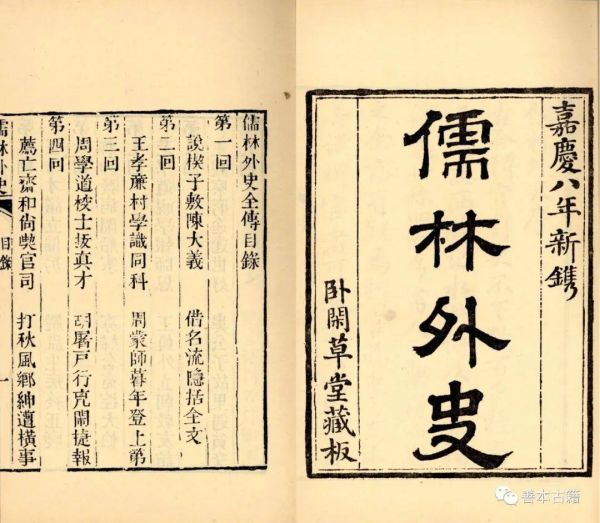 嘉慶八年新鐫
儒林外史
卧閑草堂藏板
儒林外史全傳目錄
第一回
說楔子敷陳大義 借名流隱括全文
第二回
王孝廉村學識同科 周蒙師暮年登上第
第三回
周學道校士拔真才 胡屠戶行兇鬧捷報
第四回
薦亡齋和尚喫官司 打秋風鄉紳遭橫事
儒林外史 目錄 一
善本古籍